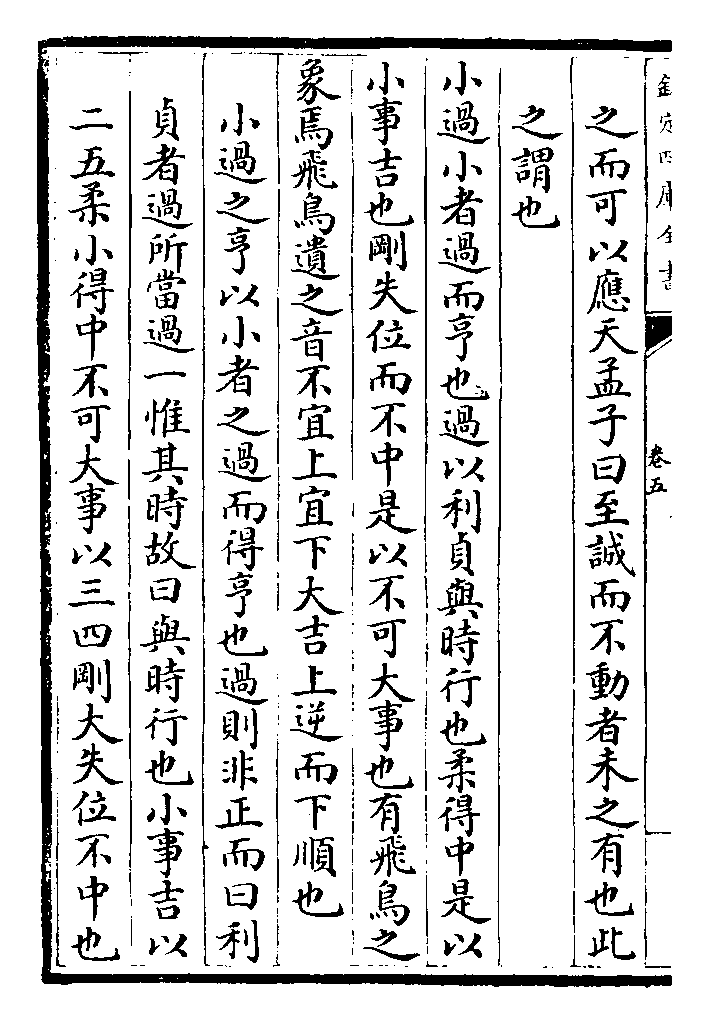 欽定四庫全書
卷五
之而可以應天孟子曰至誠而不動者未之有也此
之謂也
小過小者過而亨也過以利貞與時行也柔得中是以
小事吉也剛失位而不中是以不可大事也有飛鳥之
象焉飛鳥遺之音不宜上宜下大吉上逆而下順也
小過之亨以小者之過而得亨也過則非正而曰利
貞者過所當過一惟其時故曰與時行也小事吉以
二五柔小得中不可大事以三四剛大失位不中也